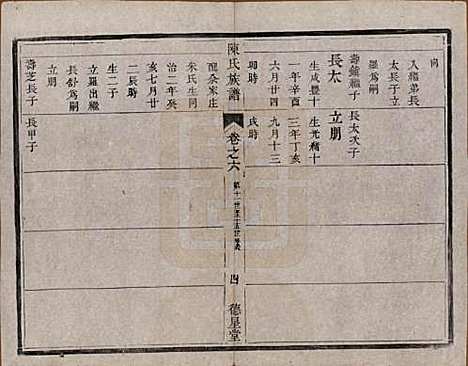 向
入繼弟長
太長子立
壘爲嗣
壽鎮繼子
長太
生咸豐十
一年辛酉
六月廿四
卯時
長太次子
立朋
生光緒十
三年丁亥
九月十三
戌時
陳氏族譜
卷之六
四
德星堂
配余家庄
朱氏生同
治二年癸
亥七月廿
二辰時
生二子
立壘出繼
長舒爲嗣
立朋
壽芝長子
長甲子